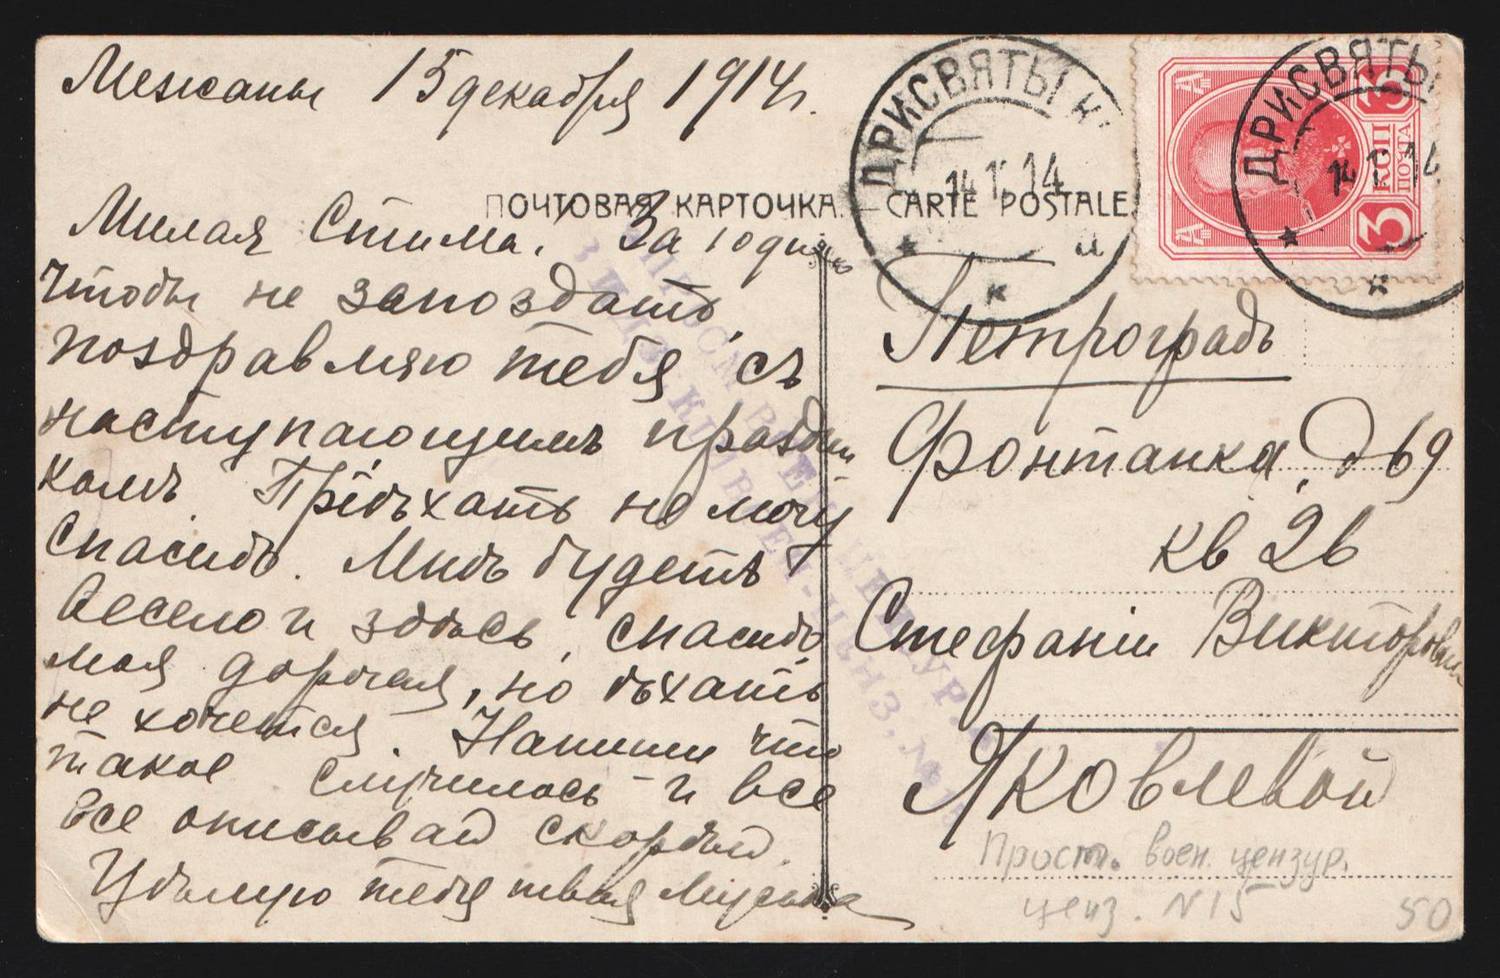 Межаны 15 декабря 1914 г.
ПОЧТОВАЯ КАРТОЧКА. — CARTE POSTALE
Милая Стима! За
чтобы не запоздать,
поздравляю тебя съ
наступающимъ праздни
комъ. Пріѣхать не могу
спасибо. Мнѣ будетъ
весело и здѣсь, спасибо
моя дорогая, но ѣхать
не хочется. Напиши что
такое случилось и все
все описывай скорѣй.
Цѣлую тебя твоя Муська
ДРИСВЯТЫ
14 1 14
ДРИСВЯТЫ
14 1 14
3 3
КОП
ПОЧТА
Петроградъ
Фонтанка, д 69
кв 26
Стефаніи Викторовнѣ
Яковлевой
Прост. воен. цензур.
ценз. N 15
50